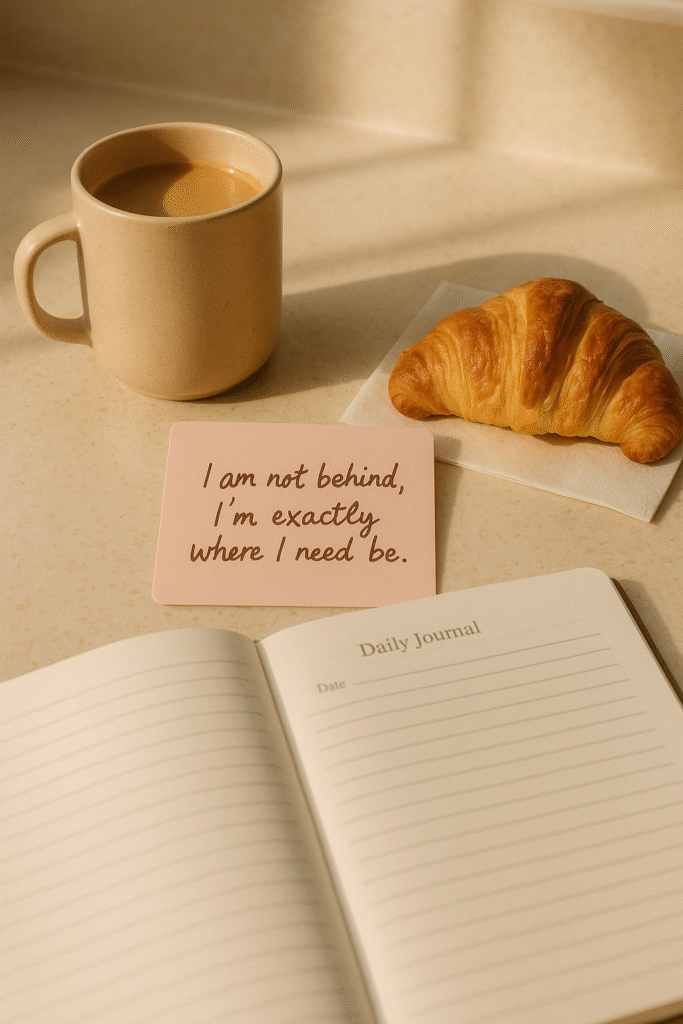 I am not behind,
I'm exactly
where I need be.
Daily Journal
Date